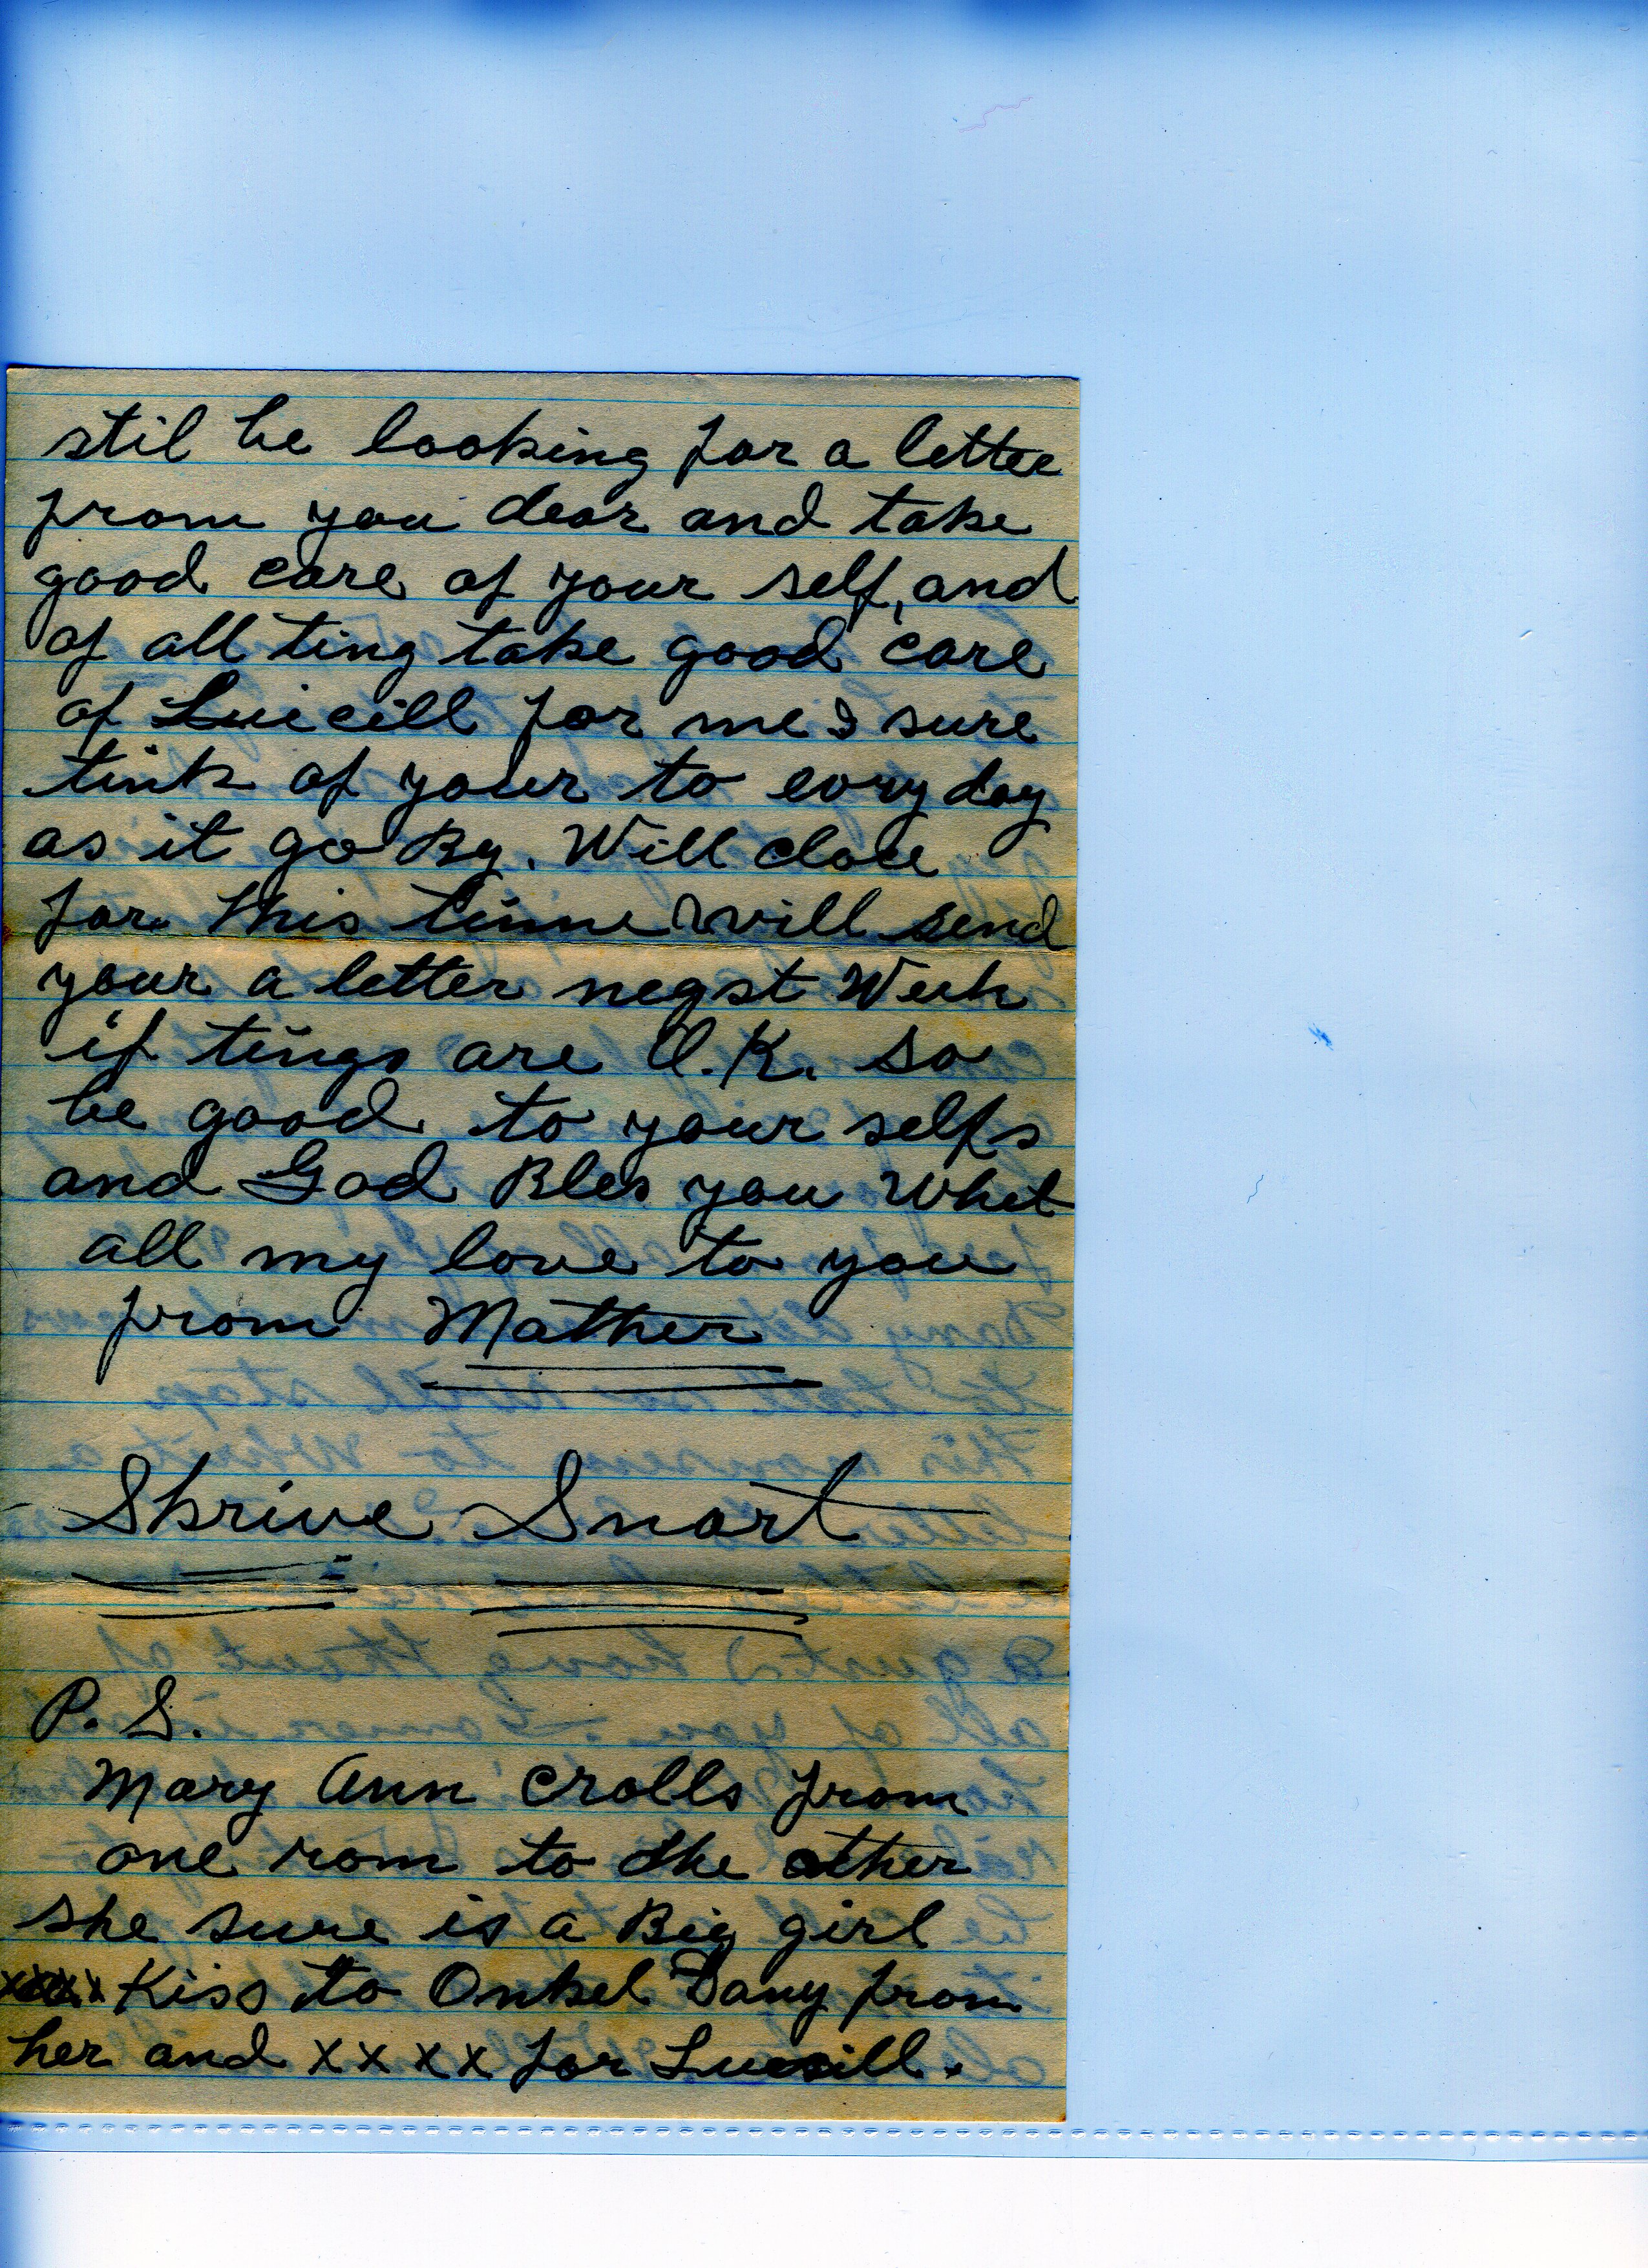 stil be looking for a letter
from you dear and take
good care of your self, and
of all ting take good care
of Luicill for me I sure
tink of your to evry day
as it go By. Will close
for this time I will send
your a letter negst Week
if tings are O.K. so
be good to your selfs
and God Bles you Whet
all my love to you
from Mother
Skrive Snart
P. S.
Mary Ann Crolls from
one rom to the other
she sure is a Big girl
xxxx Kiss to Onkel Dany from
her and x x x x for Lucill.